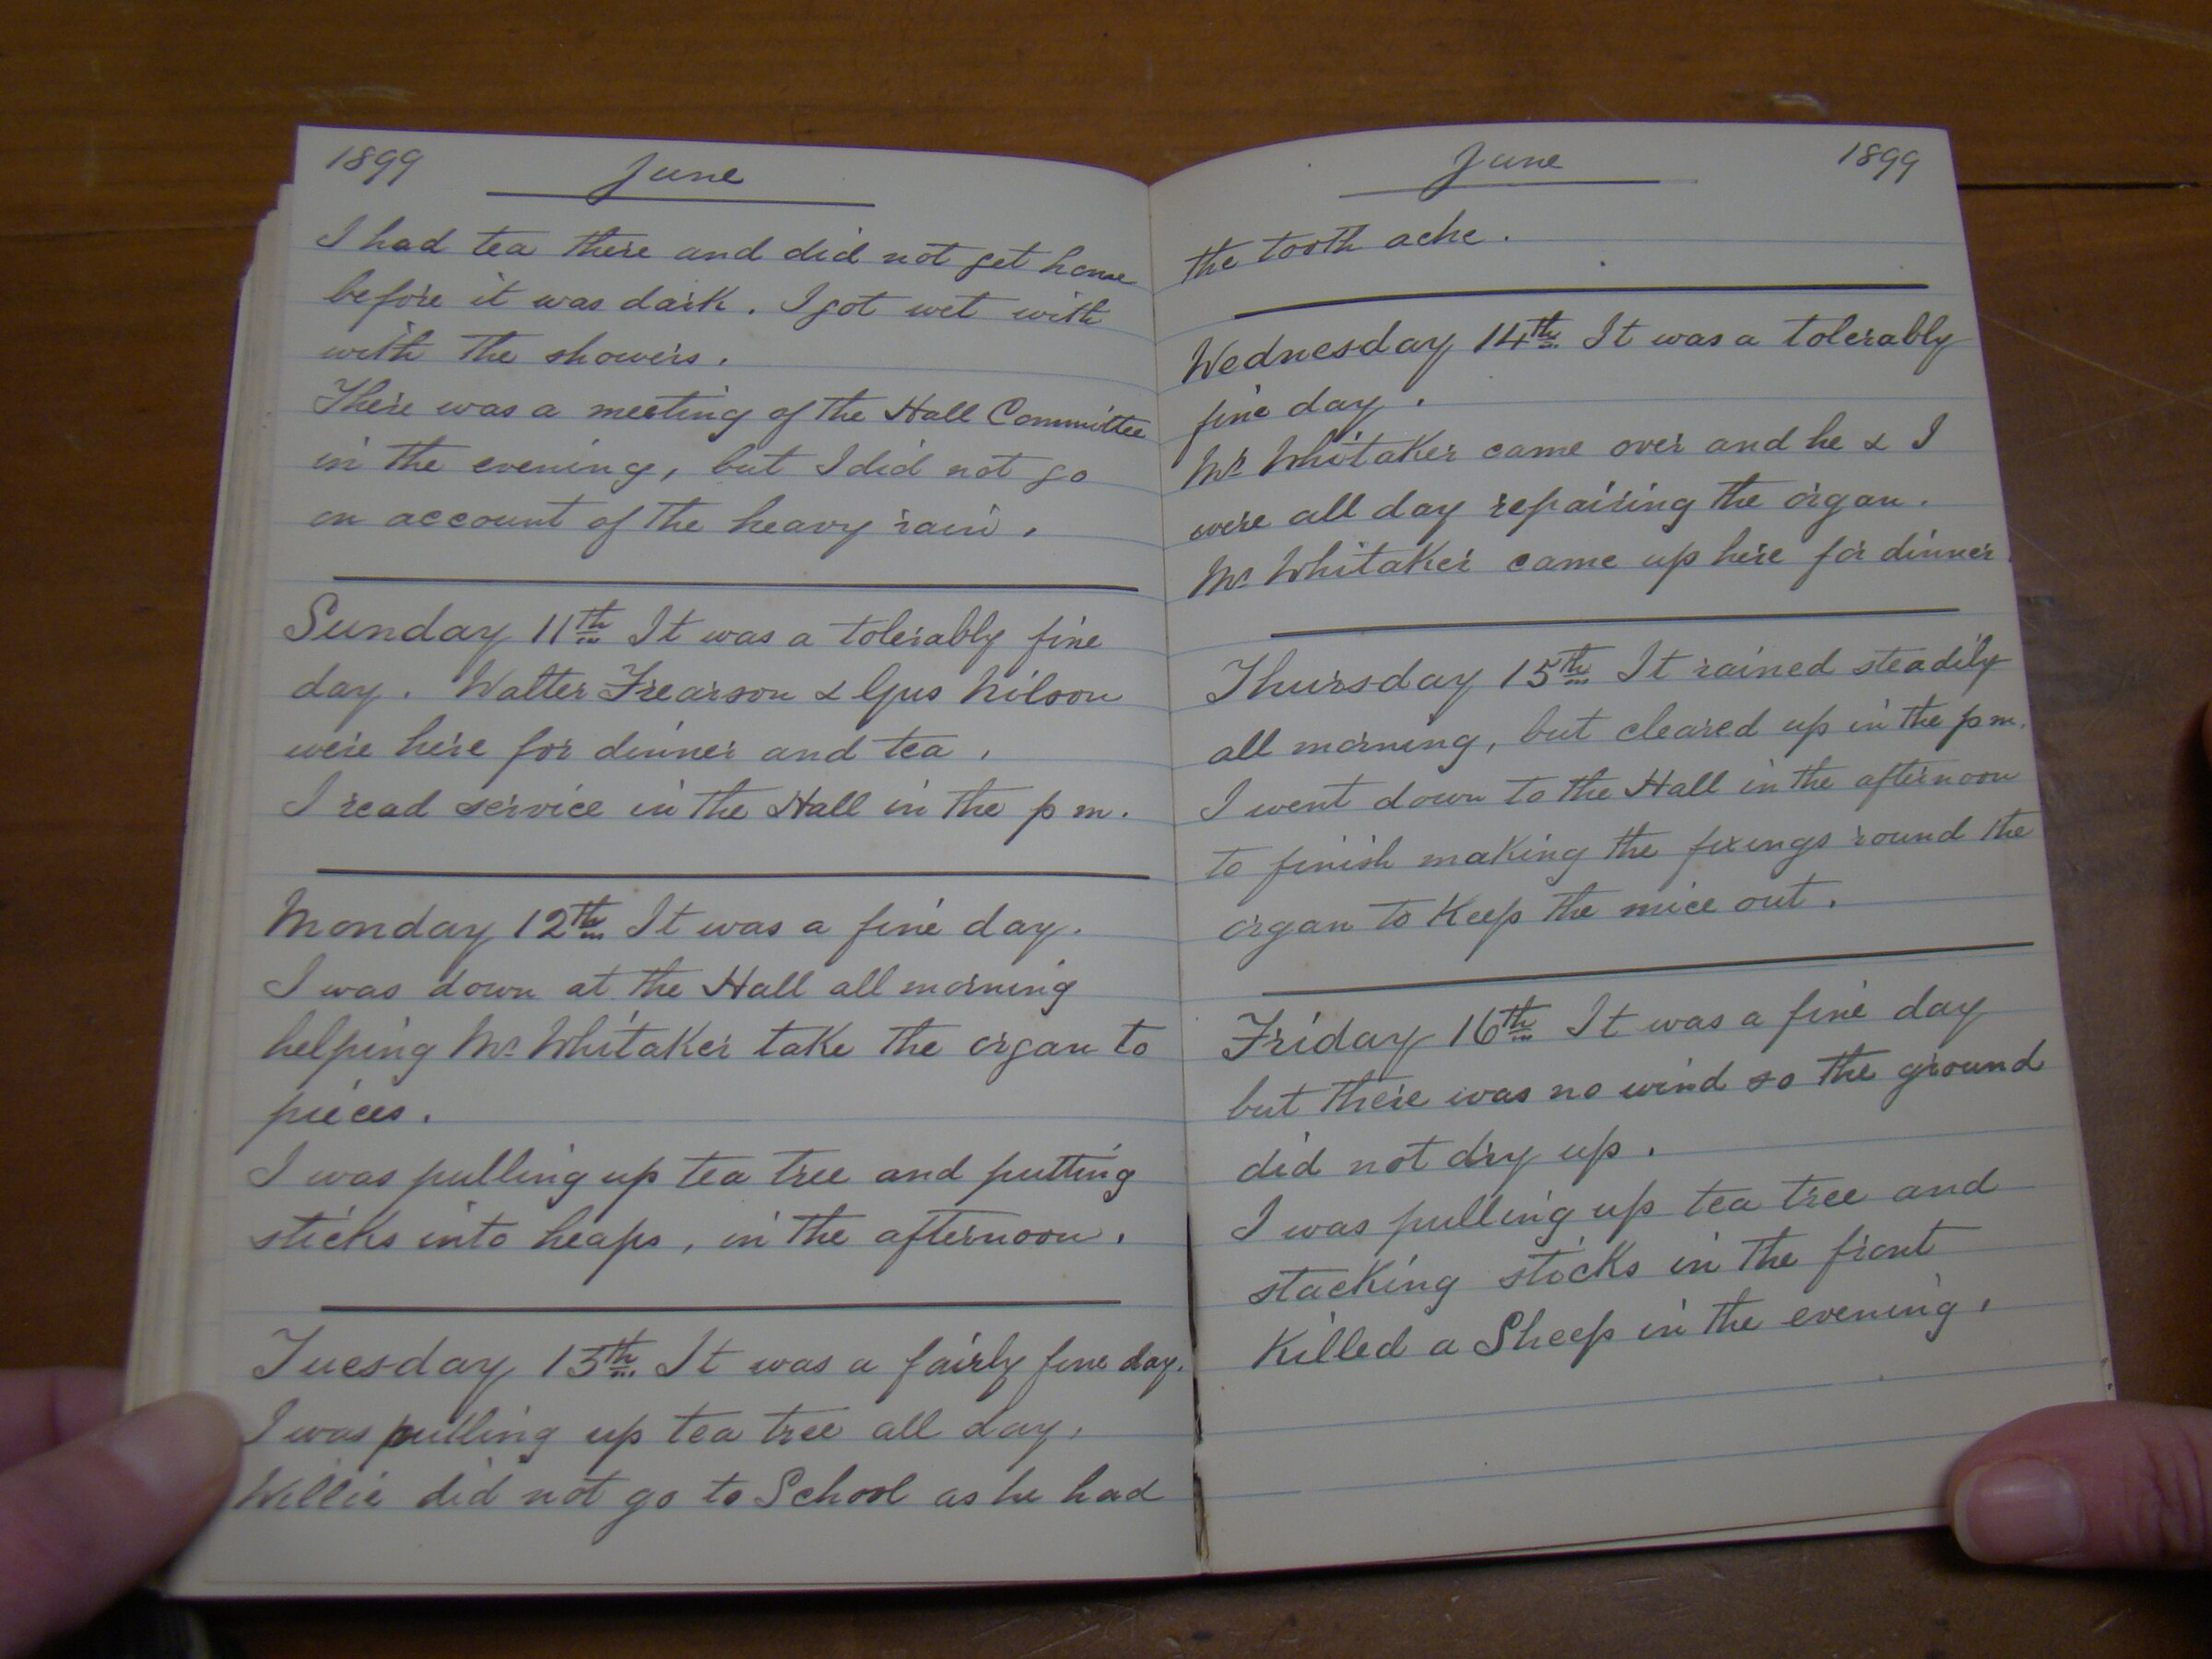 1899 June
I had tea there and did not get home
before it was dark. I got wet with
with the showers.
There was a meeting of the Hall Committee
in the evening, but I did not go
on account of the heavy rain.
Sunday 11th It was a tolerably fine
day. Walter Frearson & Gus Nilson
were here for dinner and tea.
I read service in the Hall in the p m.
Monday 12th It was a fine day.
I was down at the Hall all morning
helping Mr Whitaker take the organ to
pieces.
I was pulling up tea tree and putting
sticks into heaps, in the afternoon.
Tuesday 13th It was a fairly fine day.
I was pulling up tea tree all day.
Willie did not go to School as he had
June 1899
the tooth ache.
Wednesday 14th It was a tolerably
fine day.
Mr Whitaker came over and he & I
were all day repairing the organ.
Mr Whitaker came up here for dinner.
Thursday 15th It rained steadily
all morning, but cleared up in the p m.
I went down to the Hall in the afternoon
to finish making the fixings round the
organ to Keep the mice out.
Friday 16th It was a fine day
but there was no wind so the ground
did not dry up.
I was pulling up tea tree and
stacking sticks in the front
Killed a Sheep in the evening.